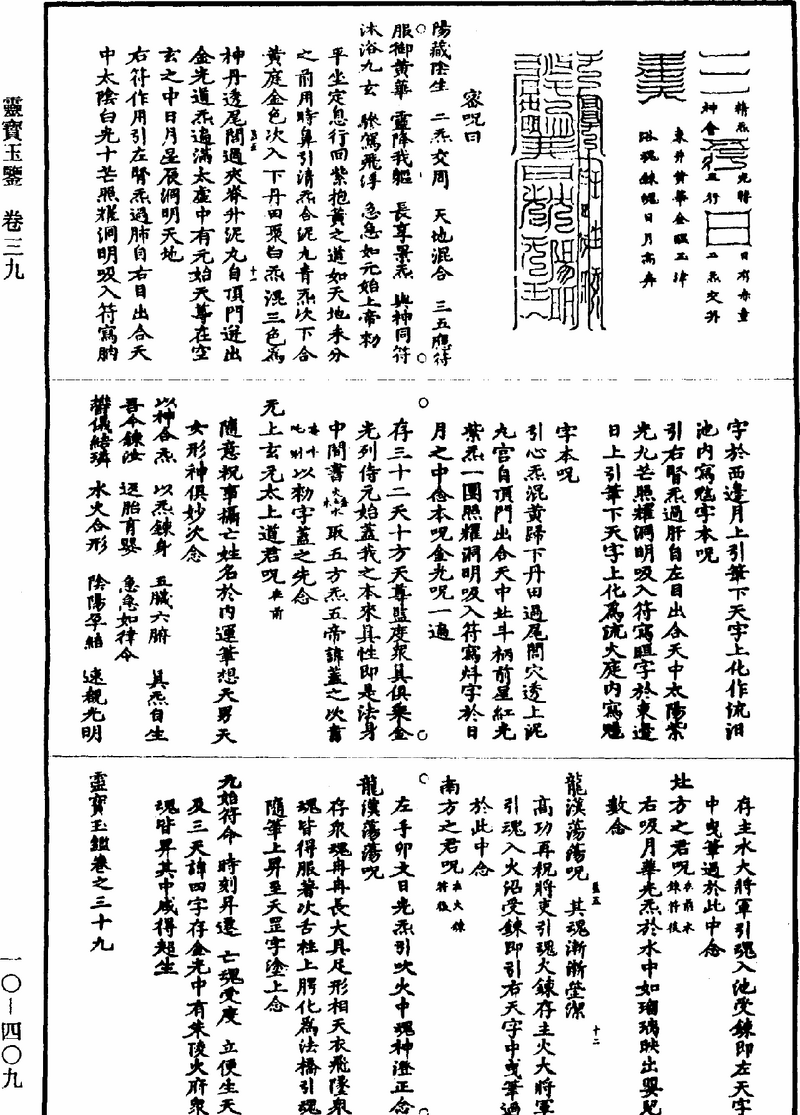 精炁
元精
日有赤童
神會
五行
二炁交升
東井黃華金暉玉津
浴魂鍊魄日月高奔
密咒曰
陽藏陰生　二炁交周　天地混合　三五應符
服御黃華　靈降我軀　長享景炁　與神同符
沐浴九玄　驂駕飛浮　急急如元始上帝勑
平坐定息行回紫抱黃之道如天地未分
之前用時鼻引清炁合泥丸青炁以次下合
黃庭金色次入下丹田聚白炁混三色為
神丹透尾閭過夾脊升泥丸自頂門迸出
金光道炁遍滿太虛中有元始天尊在空
玄之中日月星辰洞明天地
右符作用引左腎炁過肺自右目出合天
中太陰白光十芒照耀洞明吸入符寫䏎
字於西邊月上引筆下天字上化作流汨
池内寫字本咒
引右腎炁過肝自左目出合天中太陽紫
光九芒照耀洞明吸入符寫字於東邊
日上引筆下天字上化為流火庭内寫
字本咒
引心炁混黃歸下丹田過尾閭穴透上泥
丸宫自頂門出合天中北斗柄前星紅光
紫炁一團照耀洞明吸入符寫字於日
月之中念本咒金光咒一遍
存三十二天十方天尊監度眾真俱乘金
光列侍元始蓋我之本來真性即是法身
中間書取五方炁五帝諱蓋之次書
以勑字蓋之先念
元上玄元太上道君咒在前
隨意祝事攝亡姓名於内運筆想天男天
女形神俱妙次念
以神合炁　以炁鍊身　五臟六腑　真炁自生
吾今鍊汝　返胎育嬰　急急如律令
欝儀結璘　水火合形　陰陽孕結　速覩光明
存主水大將軍引魂入池受鍊即左天字
中曳筆過於此中念
北方之君咒在前水鍊符後
右吸月華光炁於水中如瑠璃映出嬰兒
數念
龍漢蕩蕩咒　其魂漸漸瑩潔
高功再祝將吏引魂火鍊存主火大將軍
引魂入火沼受鍊即引右天字中曳筆過
於此中念
南方之君咒在火鍊符後
左手卯文日光炁引吹火中魂神澄正念
龍漢蕩蕩咒
存眾魂冉冉長大具足形相天衣飛墜眾
魂皆得服著次舌柱上腭化為法橋引魂
隨筆上昇至天罡字塗上念
元始符命　時刻昇遷　亡魂受度　立便生天
及三天諱四字存金光中有朱陵火府眾
魂皆昇其中咸得超生
靈寶玉鑑卷之三十九
靈寶玉鑒　卷三九
一〇—四〇九